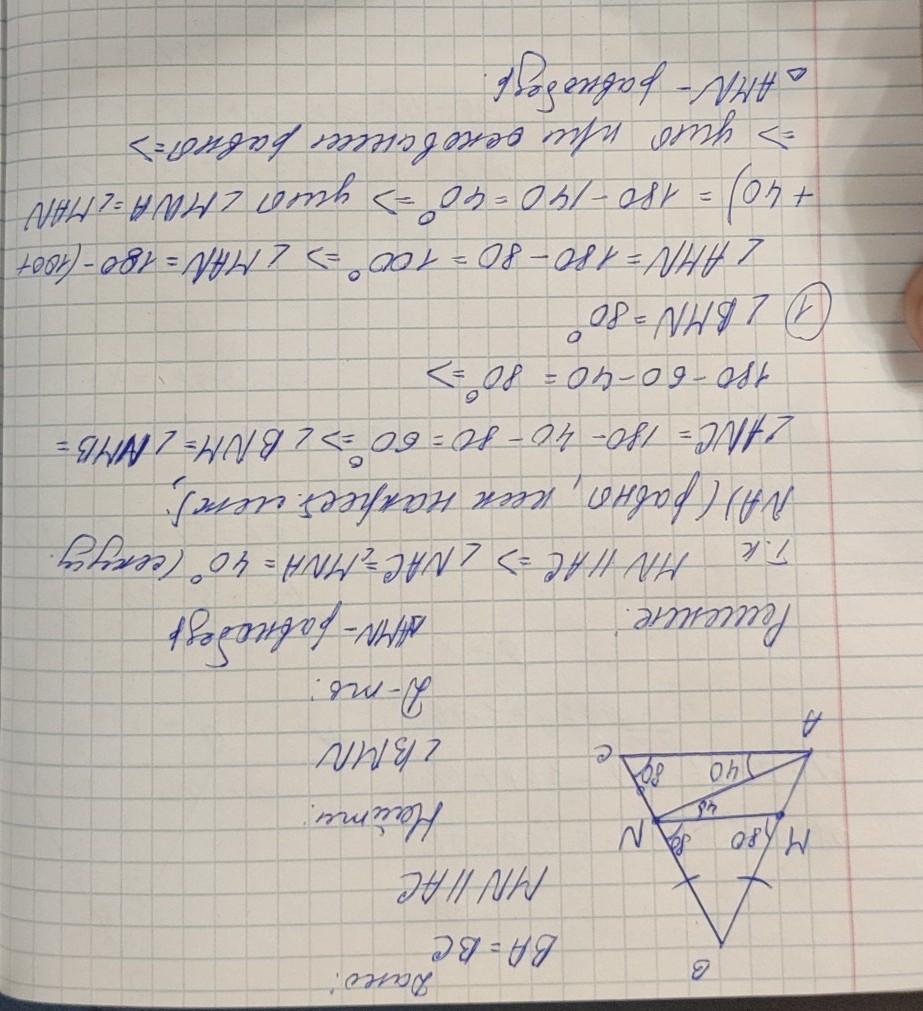 Дано:
BA = BC
MN || AC
Найти:
∠BMN
Д-ть:
∆AMN - равнобедр
B
M 80 80 N
40
40 80°
A C
Решение:
Т.к MN || AC => ∠NAC = ∠MNA = 40° (секущ.
NA) (равно, как накрест. леж);
∠ANC = 180 - 40 - 80 = 60° => ∠BNM = ∠NMB =
180 - 60 - 40 = 80° =>
① ∠BMN = 80°
∠AMN = 180 - 80 = 100° => ∠MAN = 180 - (100+
+ 40) = 180 - 140 = 40° => углы ∠MNA = ∠MAN
=> углы при основании равно =>
∆AMN - равнобедр.